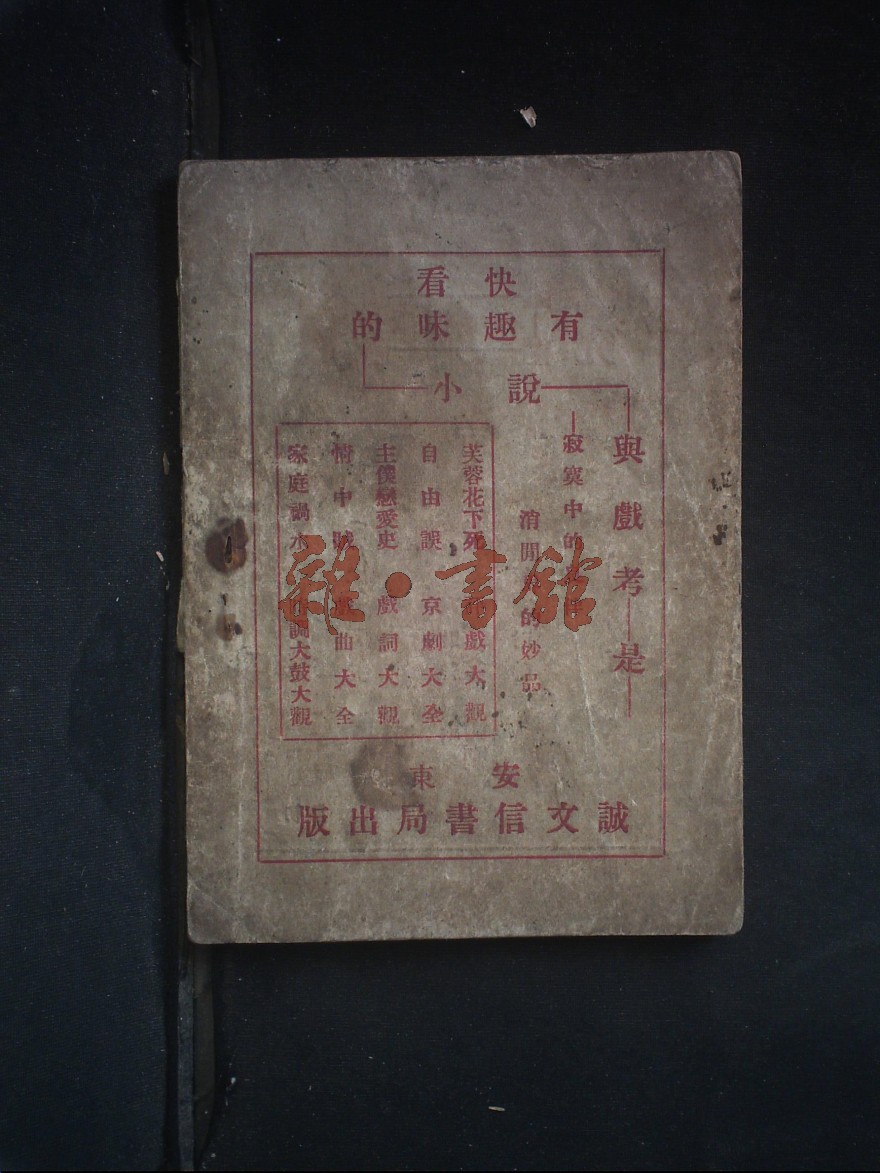 快看
有趣味的
小說
與戲考是
寂寞中的
消閒的妙品
芙蓉花下死 戲大觀
自由誤 京劇大全
主僕戀愛史 戲詞大觀
情中 曲大全
家庭禍水 調大鼓大觀
安東
誠文信書局出版
雜·書館